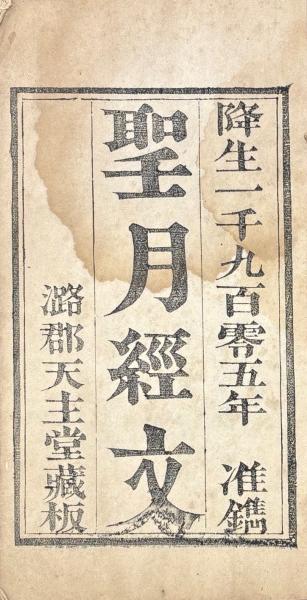 降生一千九百零五年 准鐫
聖月經文
潞郡天主堂藏板